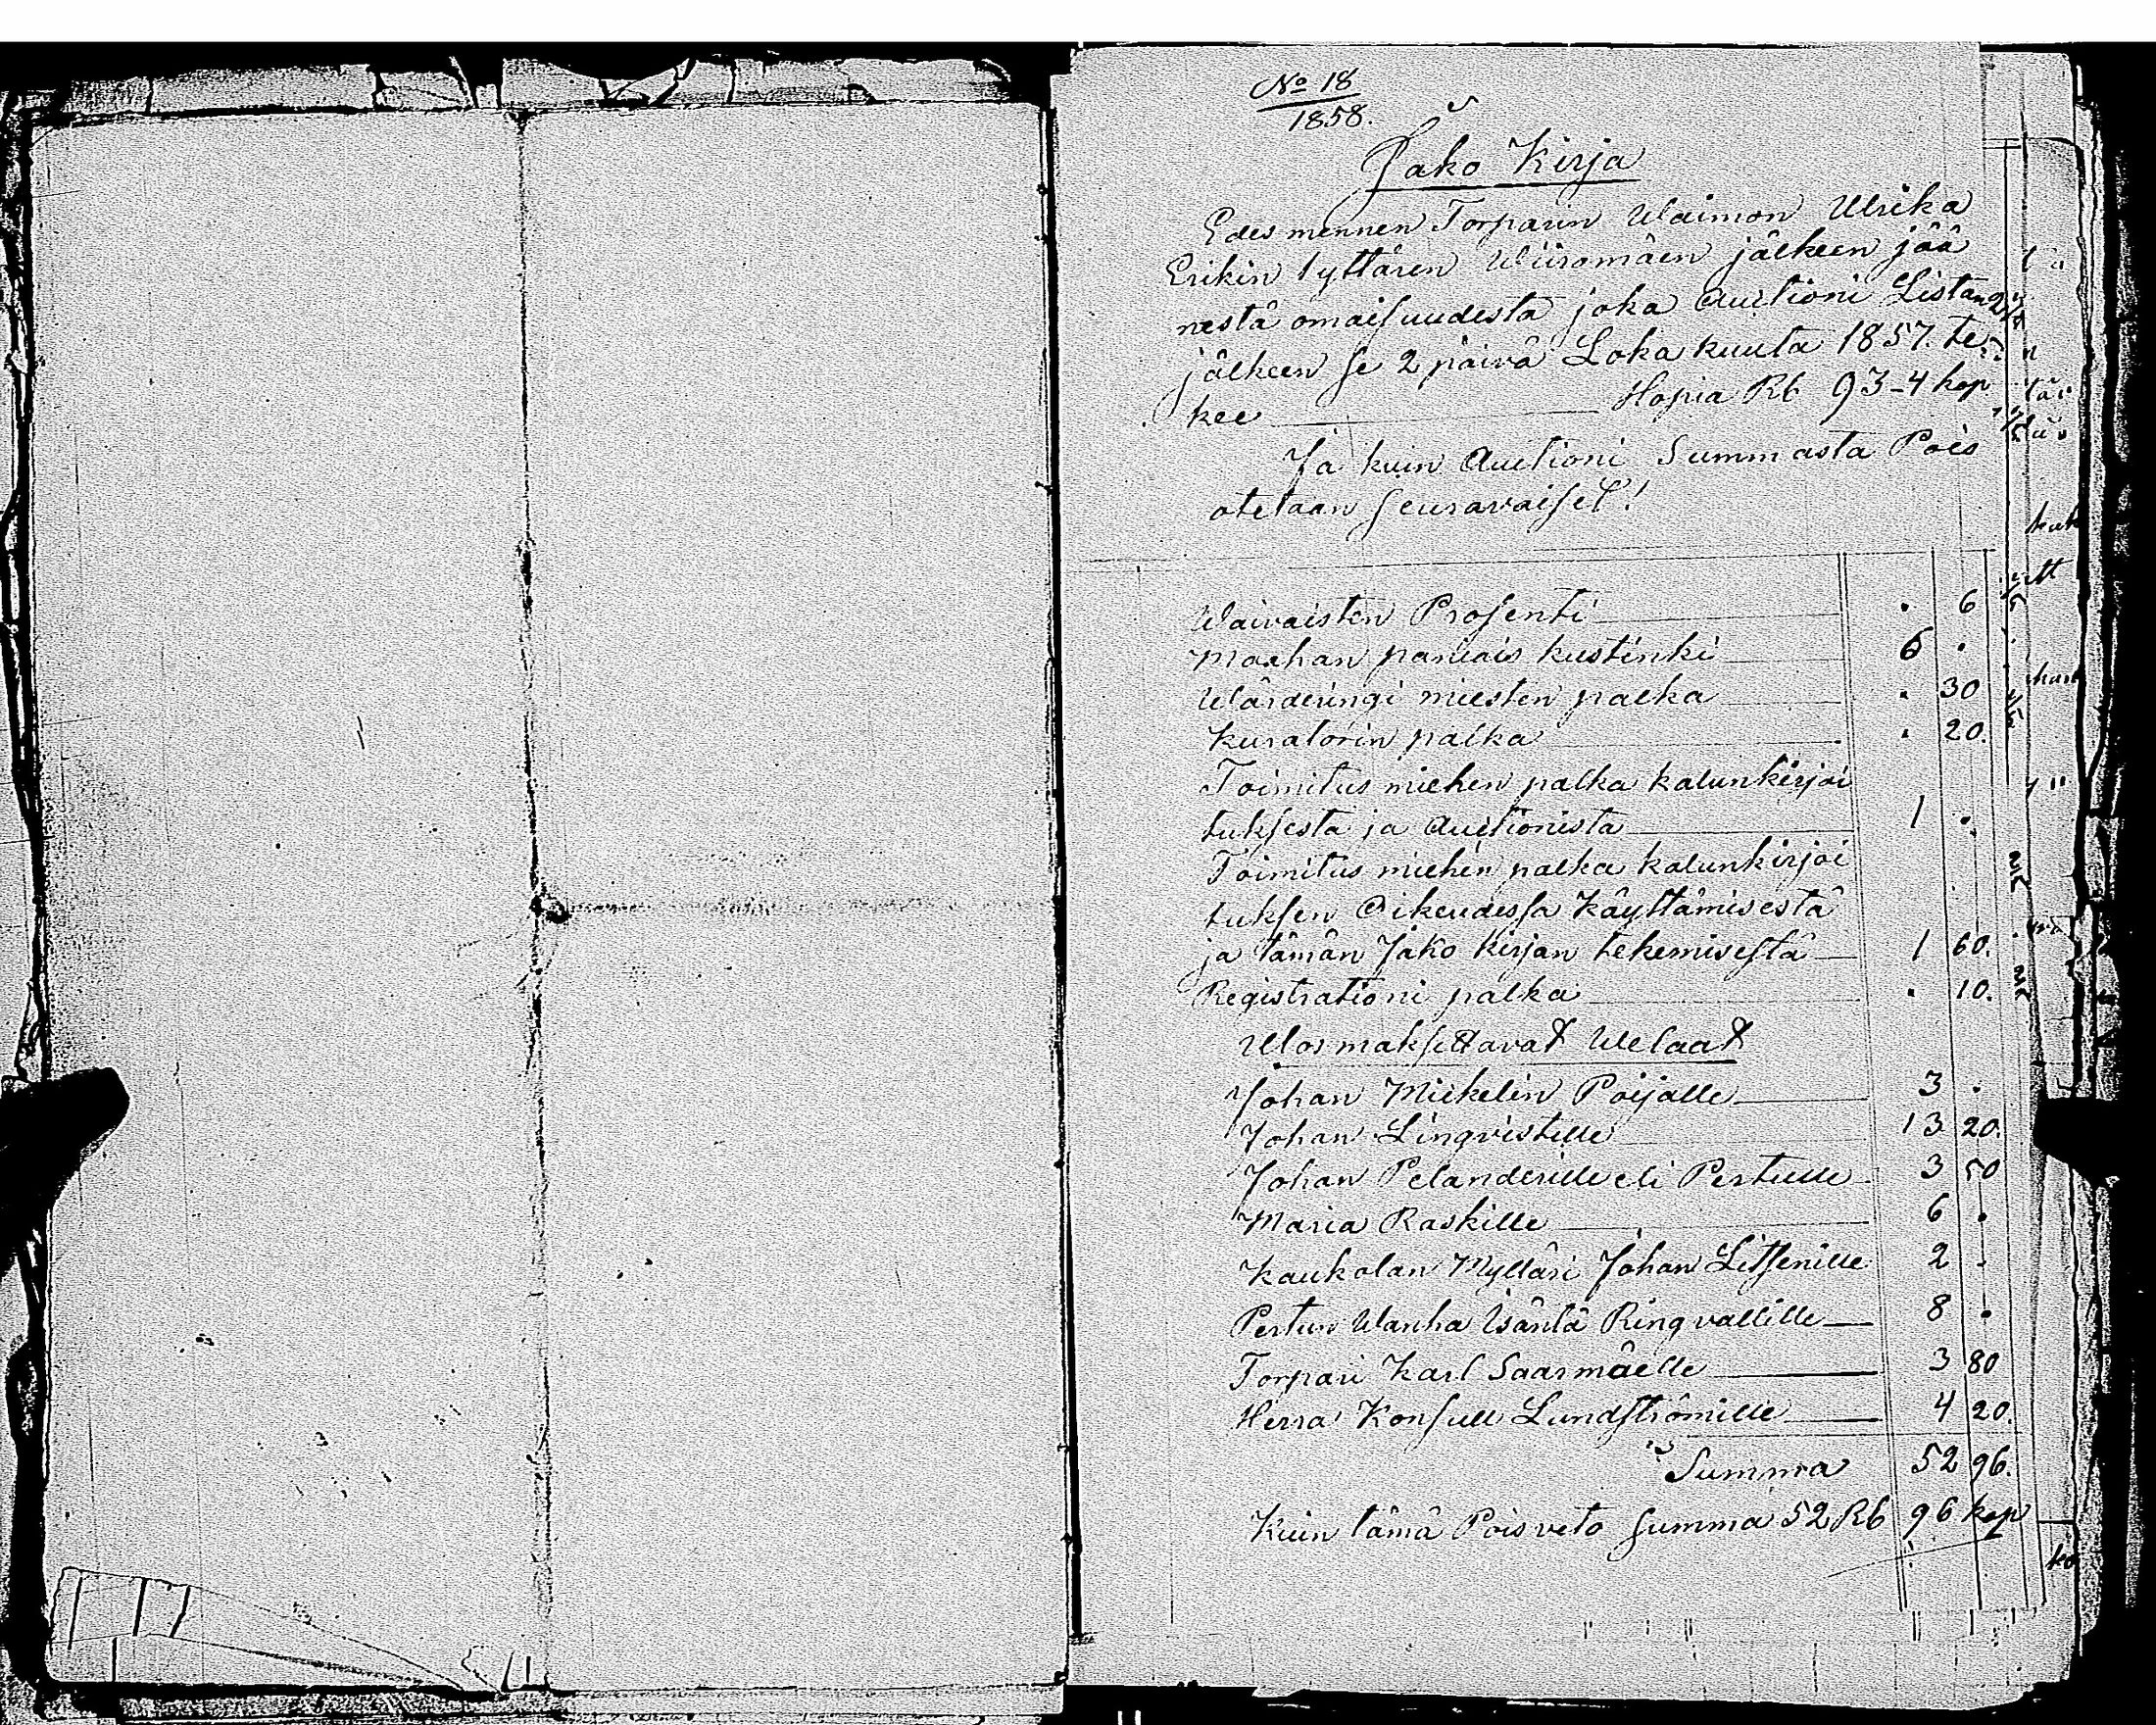 No 18
1858.
Jako Kirja
Edes mennen Torparin Waimon Ulrika
Erikin tyttären Wiiromäen jälkeen jää
nestä omaisuudesta joka Auctioni Listan
jälkeen se 2 päivä Loka kuuta 1857. te
kee Hopia Rb 93-4 kop
Ja kuin Auctioni Summasta Pois
otetaan seuravaiset!
Waivaisten Prosenti . 6
Maahan paniais kustinki 6 .
Wärderingi miesten palka . 30
Kuratorin palka . 20.
Toimitus miehen palka kalunkirjoi
tuksesta ja Auctionista 1 .
Toimitus miehen palka kalunkirjoi
tuksen Oikeudessa Käyttämisestä
ja tämän Jako kirjan tekemisestä 1 60.
Registrationi palka . 10.
Ulos maksettavat Welaat
Johan Mickelin Poijalle 3 .
Johan Linqvistille 13 20.
Johan Pelanderille eli Pertulle 3 50
Maria Raskille 6 .
Kaukolan Mylläri Johan Litsenille 2 .
Pertun Wanha Isäntä Ringvallille 8 .
Torpari Karl Saarmäelle 3 80
Herra Konsull Lundströmille 4 20.
Summa 52 96.
Kuin tämä Pois veto summa 52 Rb 96 kop